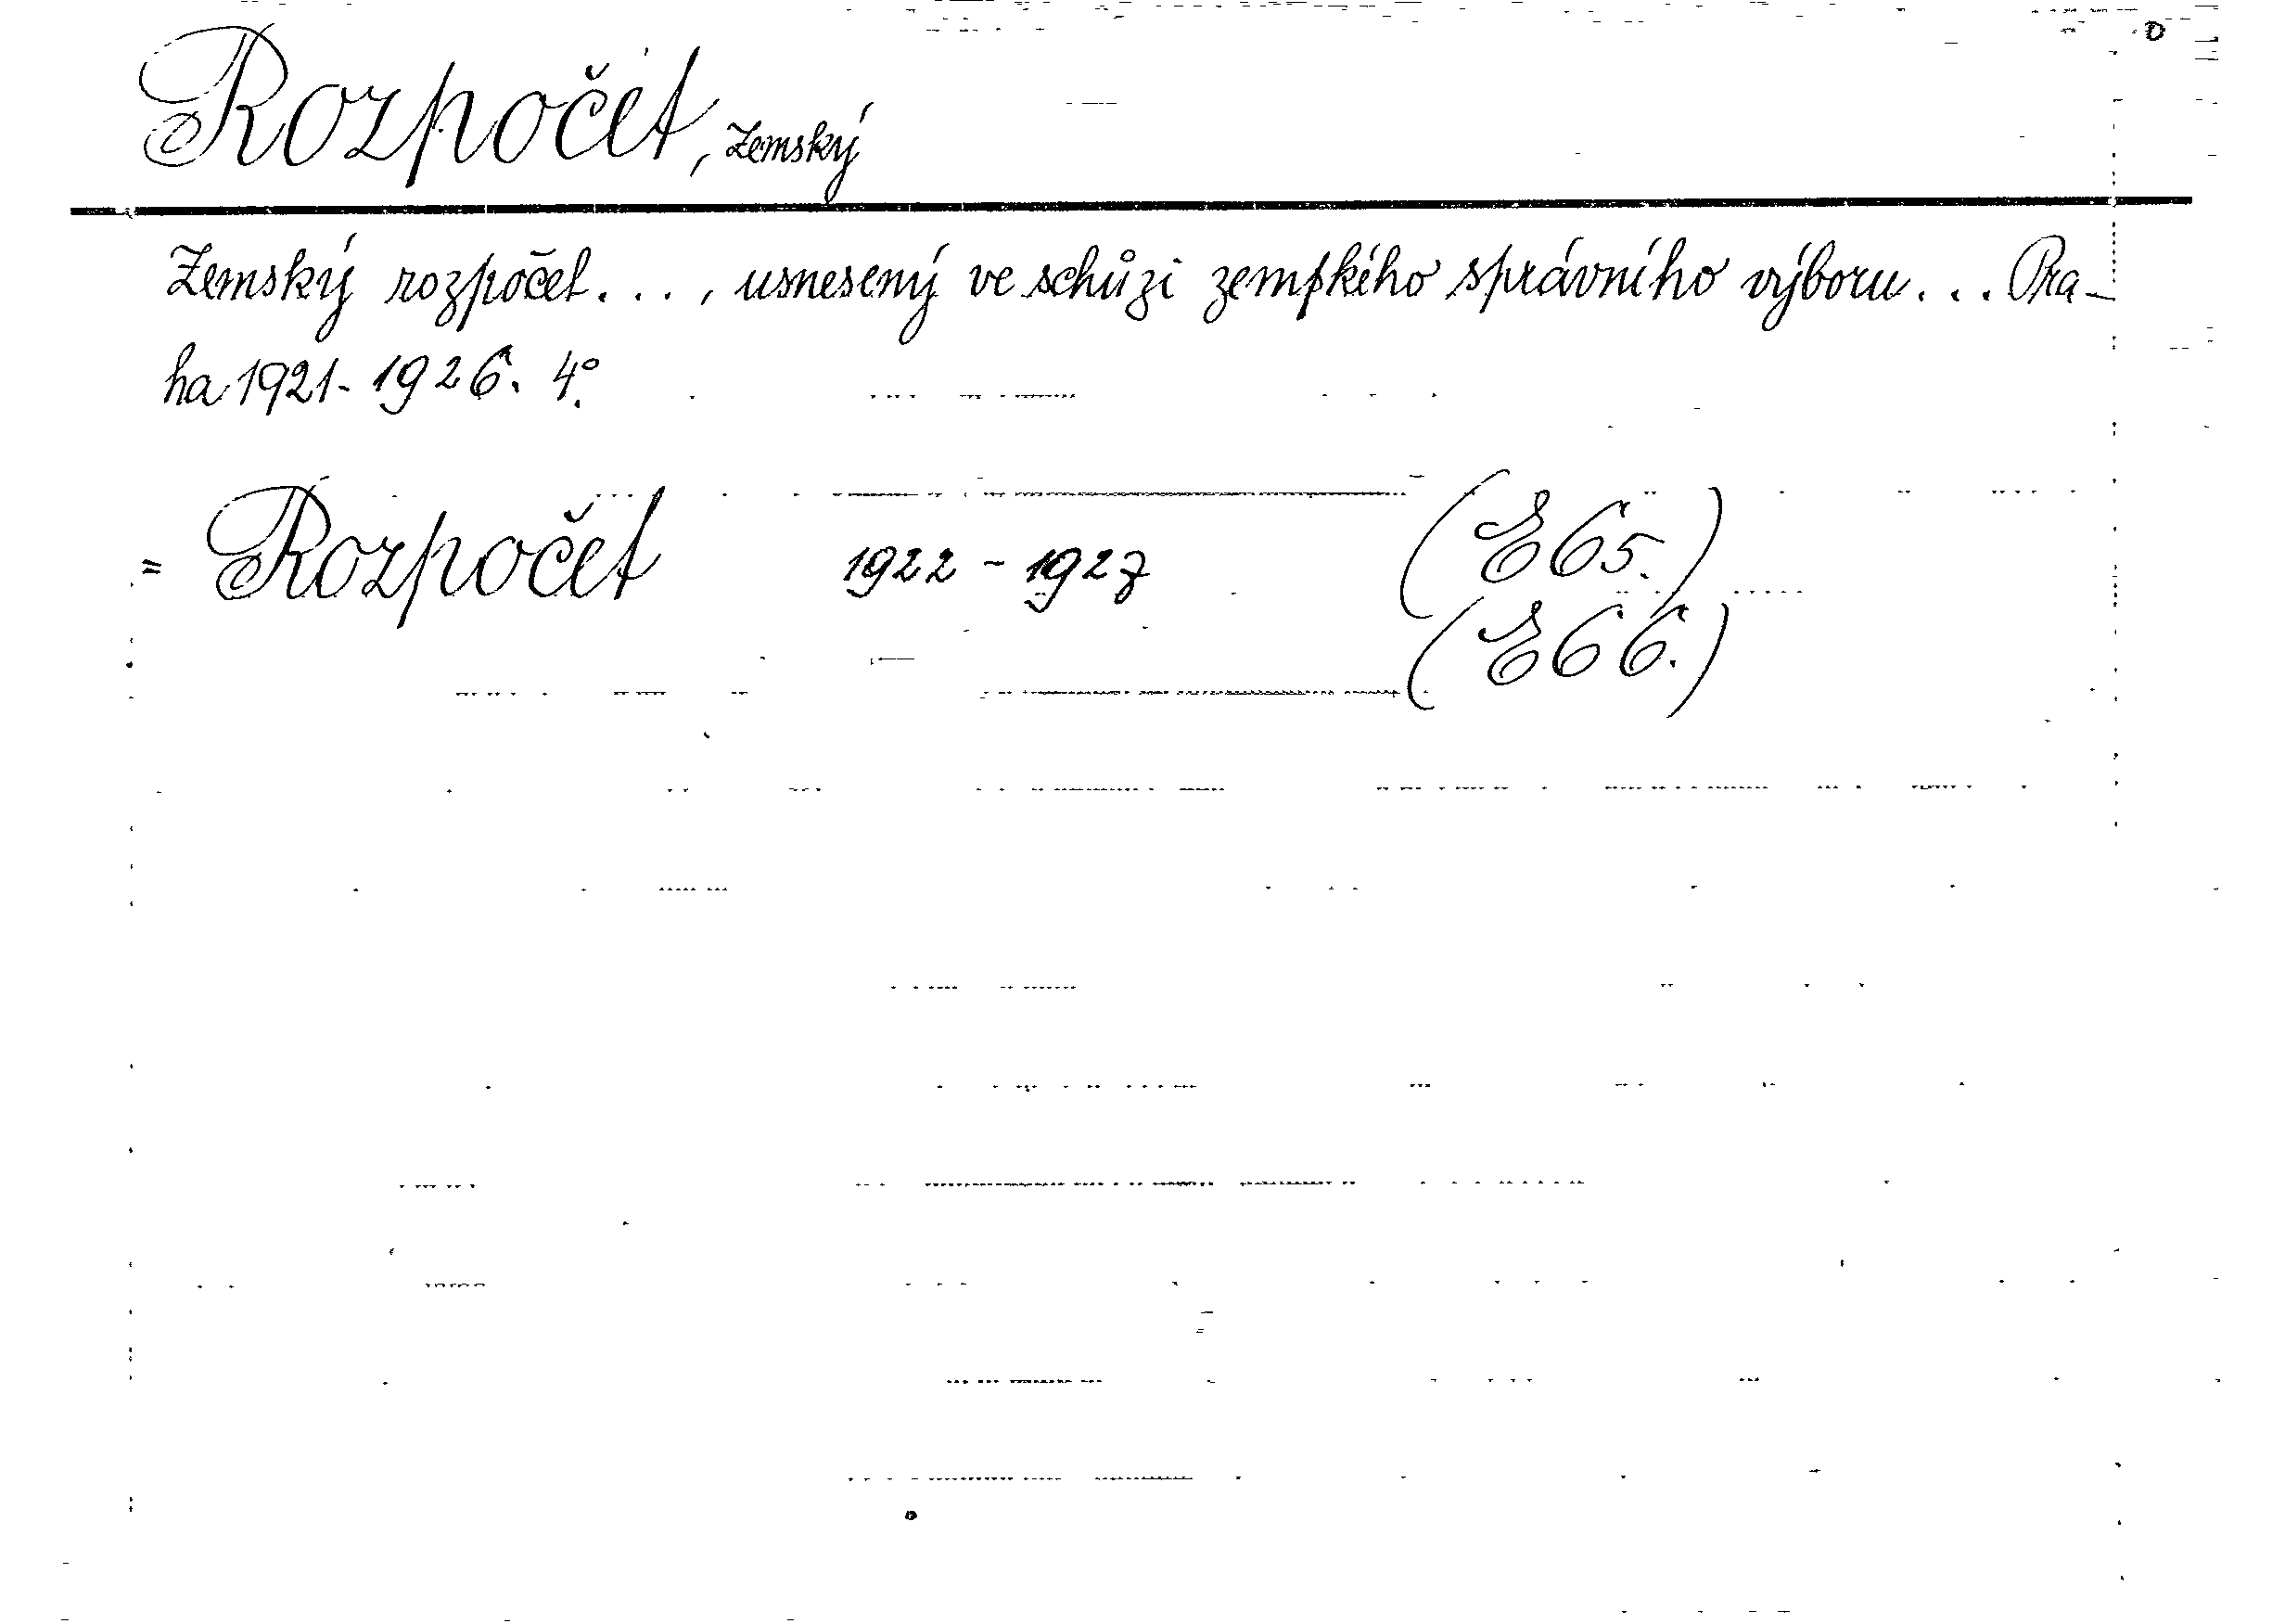 Rozpočet, zemský
Zemský rozpočet..., usnesený ve schůzi zemského správního výboru... Pra-
ha 1921-1926. 4°.
= Rozpočet 1922 - 1927 (E 65.)
(E 66.)